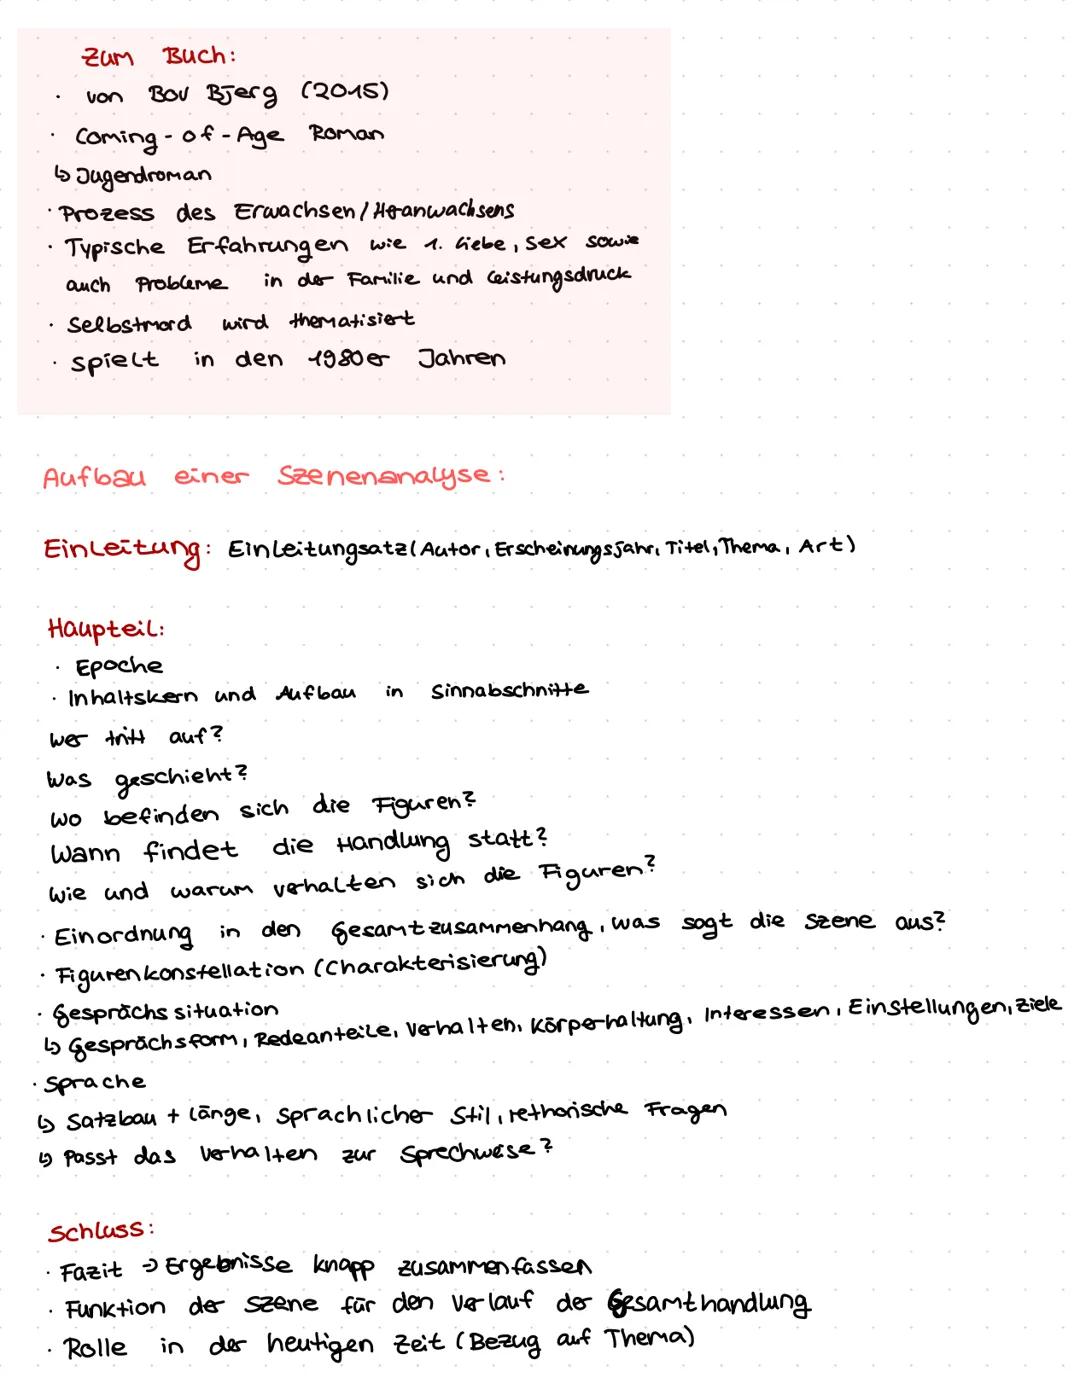 Zum Buch:
· von Bov Bjerg (2015)
· Coming-of-Age Roman
↳ Jugendroman
· Prozess des Erwachsen/Heranwachsens
· Typische Erfahrungen wie 1. Liebe, Sex sowie
auch Probleme in der Familie und Leistungsdruck
· Selbstmord wird thematisiert
· spielt in den 1980er Jahren
Aufbau einer Szenenanalyse:
Einleitung: Einleitungsatz (Autor, Erscheinungsjahr, Titel, Thema, Art)
Haupteil:
· Epoche
· Inhaltskern und Aufbau in Sinnabschnitte
Wer tritt auf?
Was geschieht?
Wo befinden sich die Figuren?
Wann findet die Handlung statt?
Wie und warum verhalten sich die Figuren?
· Einordnung in den Gesamtzusammenhang, was sagt die Szene aus?
· Figurenkonstellation (Charakterisierung)
· Gesprächssituation
↳ Gesprächsform, Redeanteile, Verhalten, Körperhaltung, Interessen, Einstellungen, Ziele
· Sprache
↳ Satzbau + länge, sprachlicher Stil, rethorische Fragen
↳ Passt das Verhalten zur Sprechweise?
Schluss:
· Fazit → Ergebnisse knapp zusammenfassen
· Funktion der Szene für den Verlauf der Gesamthandlung
· Rolle in der heutigen Zeit (Bezug auf Thema)